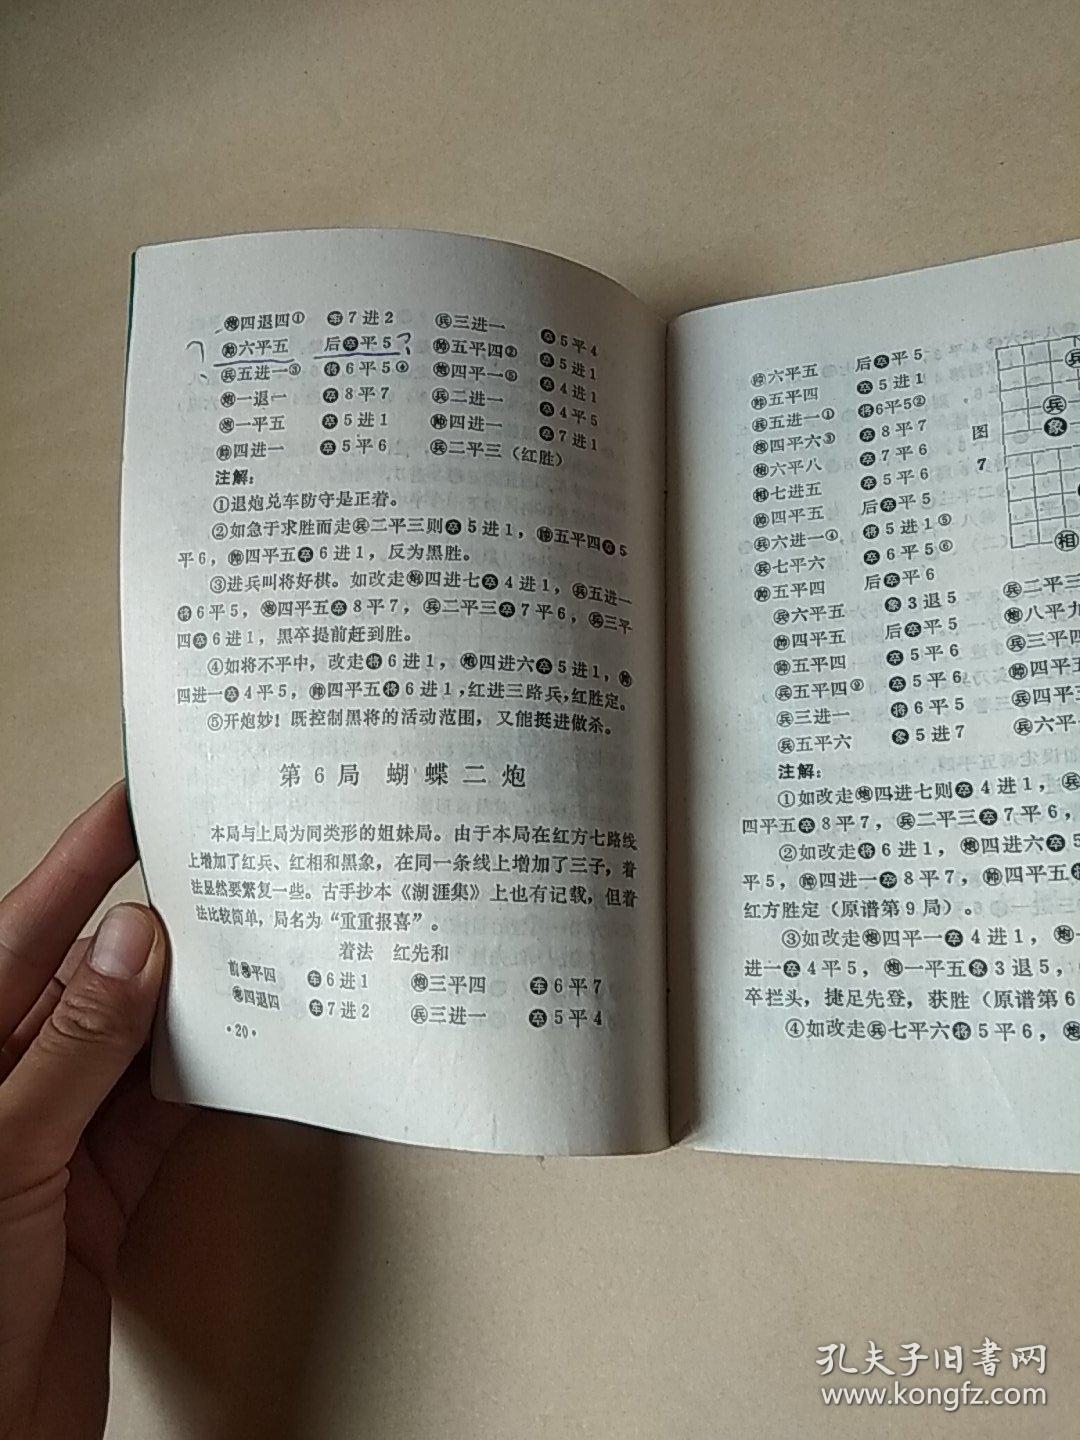 炮四退四① 车7进2 兵三进一 卒5平4
帅六平五 后卒平5 帅五平四② 卒5进1
兵五进一③ 将6平5④ 炮四平一⑤ 卒4进1
炮一退一 卒8平7 兵二进一 卒4平5
炮一平五 卒5进1 帅四进一 卒7进1
帅四进一 卒5平6 兵二平三（红胜）
注解：
①退炮兑车防守是正着。
②如急于求胜而走兵二平三则卒5进1，帅五平四卒5
平6，帅四平五卒6进1，反为黑胜。
③进兵叫将好棋。如改走炮四进七卒4进1，兵五进一
将6平5，炮四平五卒8平7，兵二平三卒7平6，兵三平
四卒6进1，黑卒提前赶到胜。
④如将不平中，改走将6进1，炮四进六卒5进1，帅
四进一卒4平5，帅四平五将6进1，红进三路兵，红胜定。
⑤开炮妙！既控制黑将的活动范围，又能挺进做杀。
第6局 蝴蝶二炮
本局与上局为同类形的姐妹局。由于本局在红方七路线
上增加了红兵、红相和黑象，在同一条线上增加了三子，着
法显然要繁复一些。古手抄本《湖涯集》上也有记载，但着
法比较简单，局名为“重重报喜”。
着法 红先和
前炮平四 车6进1 炮三平四 车6平7
炮四退四 车7进2 兵三进一 卒5平4
·20·
帅六平五 后卒平5
帅五平四 卒5进1
兵五进一① 将6平5②
炮四平六③ 卒8平7
炮六平八 卒7平6
相七进五 卒5平6
帅四平五 后卒平5
兵六进一④ 将5进1⑤
兵七平六 卒6平5⑥
帅五平四 后卒平6
兵六平五 象3退5 兵二平三
帅四平五 后卒平5 炮八平九
帅五平四 卒5平6 兵三平四
兵五平四⑨ 卒5平6 帅四平五
兵三进一 将6平5 兵四平三
兵五平六 象5进7 兵六平
图
7
兵
兵
象
相
注解：
①如改走炮四进七则卒4进1，兵
四平五卒8平7，兵二平三卒7平6，
②如改走将6进1，炮四进六卒5
平5，帅四进一卒8平7，帅四平五将
红方胜定（原谱第9局）。
③如改走炮四平一卒4进1，炮一
进一卒4平5，炮一平五象3退5，
卒拦头，捷足先登，获胜（原谱第6
④如改走兵七平六将5平6，炮
孔夫子旧書网
www.kongfz.com